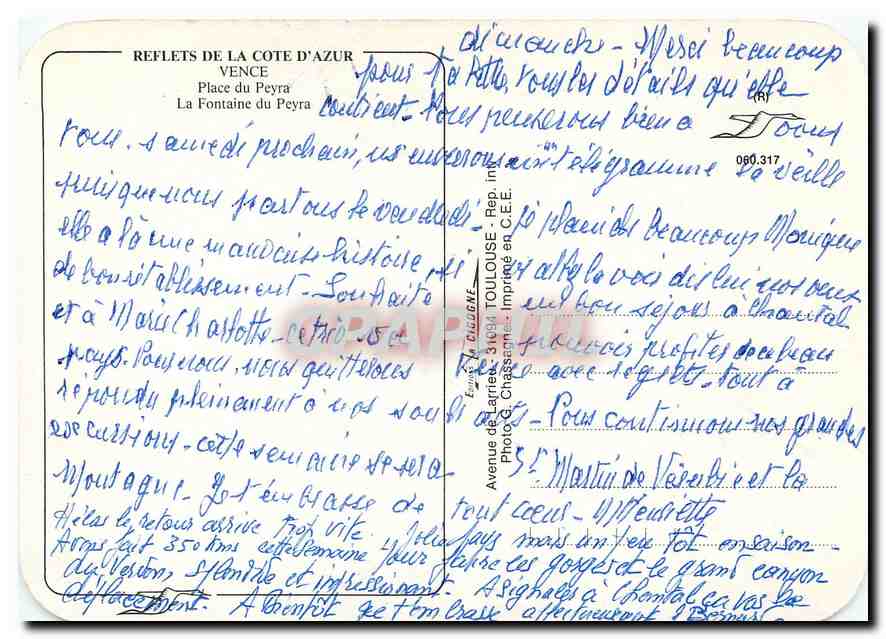 REFLETS DE LA COTE D'AZUR
VENCE
Place du Peyra
La Fontaine du Peyra
dimanche - Merci beaucoup
pour ta lettre, tous les détails qu'elle
contient. Nous penserons bien à vous
tous. samedi prochain, ns enverrons un télégramme la veille
puisque nous partons le vendredi - je plains beaucoup Monique
elle a là une mauvaise histoire, si tu la vois dis lui nos vœux
de bon rétablissement - Souhaite un bon séjour à Chantal
et à Marie Charlotte - pouvoir profiter de ce beau
pays. Pour nous, nous quitterons Vence avec regrets - tout a
répondu pleinement à nos souhaits - Nous continuons nos grandes
excursions - cette semaine ce sera St Martin de Vésubie et la
Montagne - Je t'embrasse de tout cœur - Henriette
Hélas le retour arrive trop vite. Joli pays mais un peu tôt en saison -
Avons fait 350 Kms cette semaine pour faire les gorges et le grand canyon
du Verdon, splendide et impressionnant. A signaler à Chantal ça vaut le
déplacement. A bientôt je t'embrasse affectueusement Bernard
(R)
060.317
Editions LA CIGOGNE
Avenue de Larrieu 31094 TOULOUSE - Rep. int.
Photo G. Chassagne - Imprimé en C.E.E.
CPAPHIL